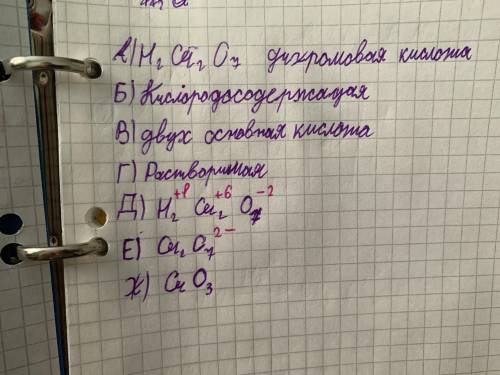 А) H₂Cr₂O₇ дихромовая кислота
Б) Кислородосодержащая
В) двух основная кислота
Г) Растворимая
Д) H₂⁺¹ Cr₂⁺⁶ O₇⁻²
Е) Cr₂O₇²⁻
Ж) CrO₃